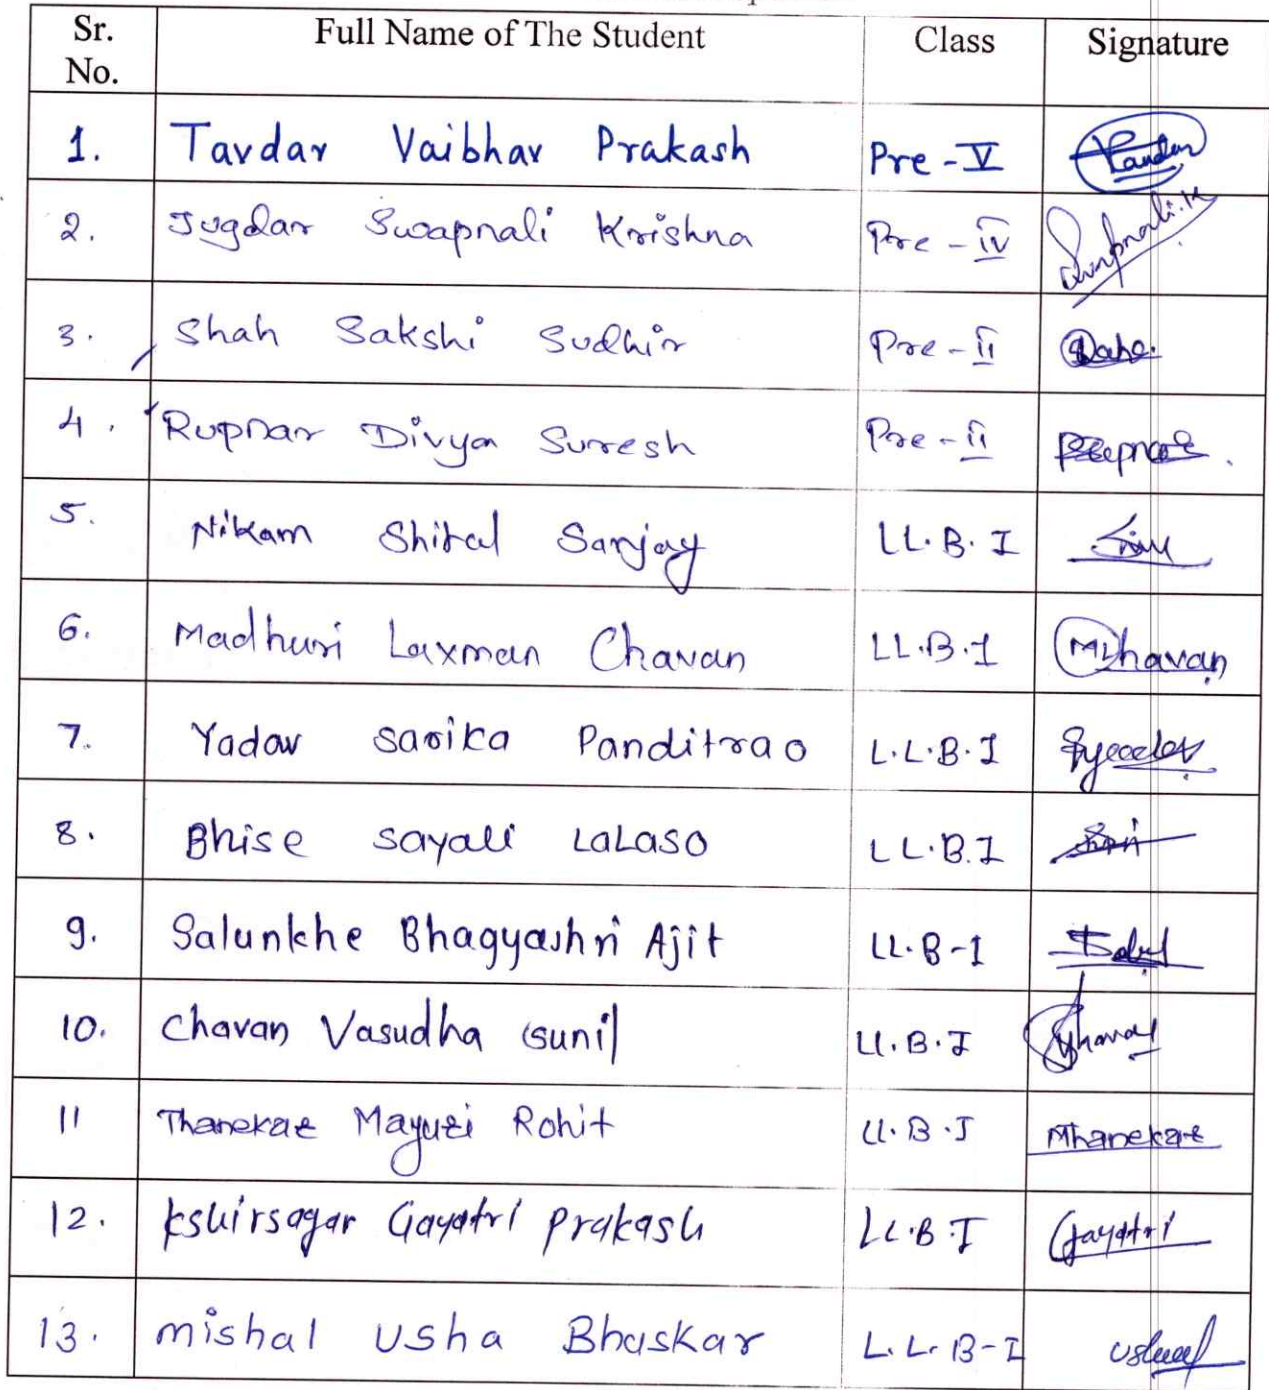 Sr. No. Full Name of The Student Class Signature
1. Tavdar Vaibhav Prakash Pre - V
2. Jugdar Swapnali Krishna Pre - IV Swapnali.K
3. Shah Sakshi Sudhir Pre - II
4. Rupnar Divya Suresh Pre - II
5. Nikam Shital Sanjay LL.B. I
6. Madhuri Laxman Chavan LL.B.I MChavan
7. Yadav Sarika Panditrao L.L.B.I
8. Bhise Sayali LaLaso LL.B.I
9. Salunkhe Bhagyashri Ajit LL.B-I
10. Chavan Vasudha Sunil LL.B.I
11 Thanekar Mayuri Rohit LL.B.I Mhanekar
12. Kshirsagar Gayatri Prakash LL.B.I Gayatri
13. Mishal Usha Bhaskar L.L.B-I